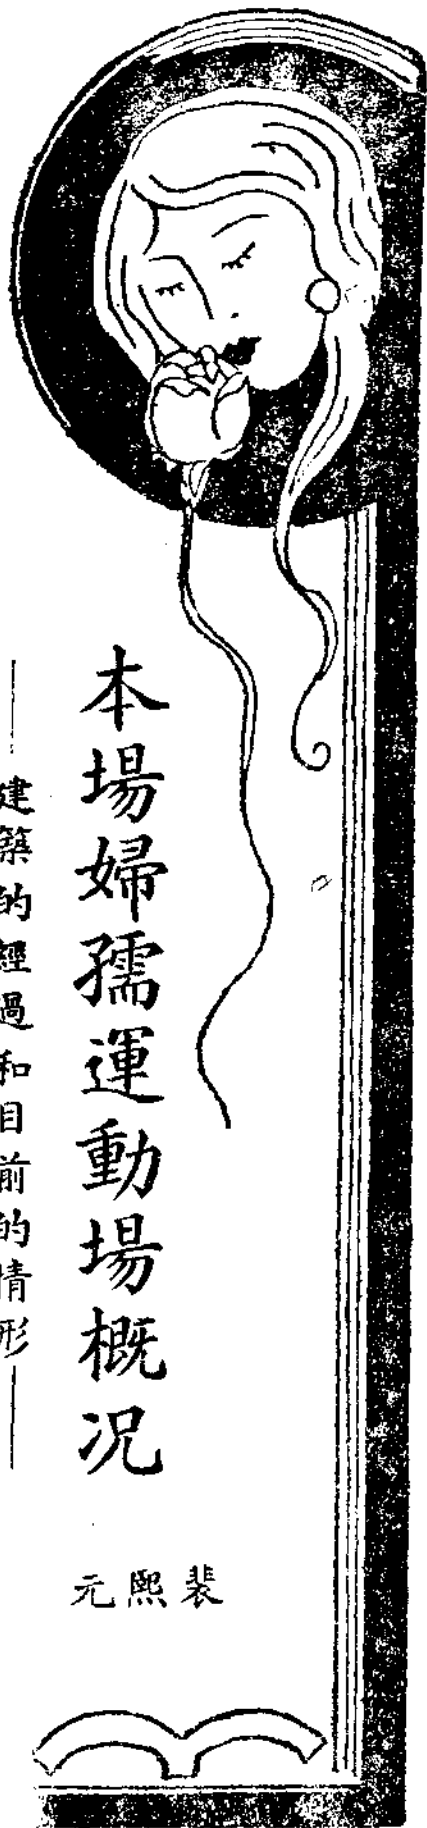 本場婦孺運動場概況
——建築的經過和目前的情形——
裴熙元